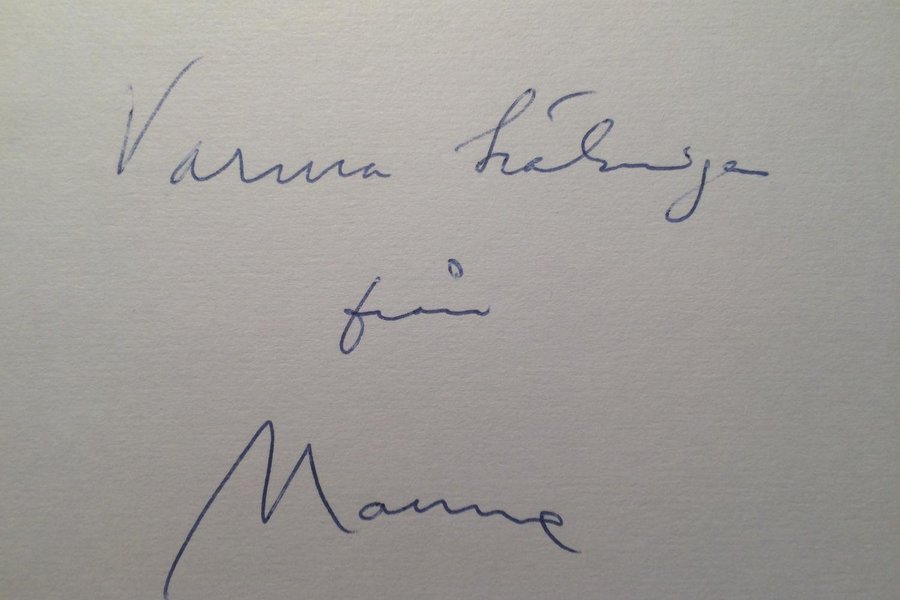 Varma hälsningar
från
Manne